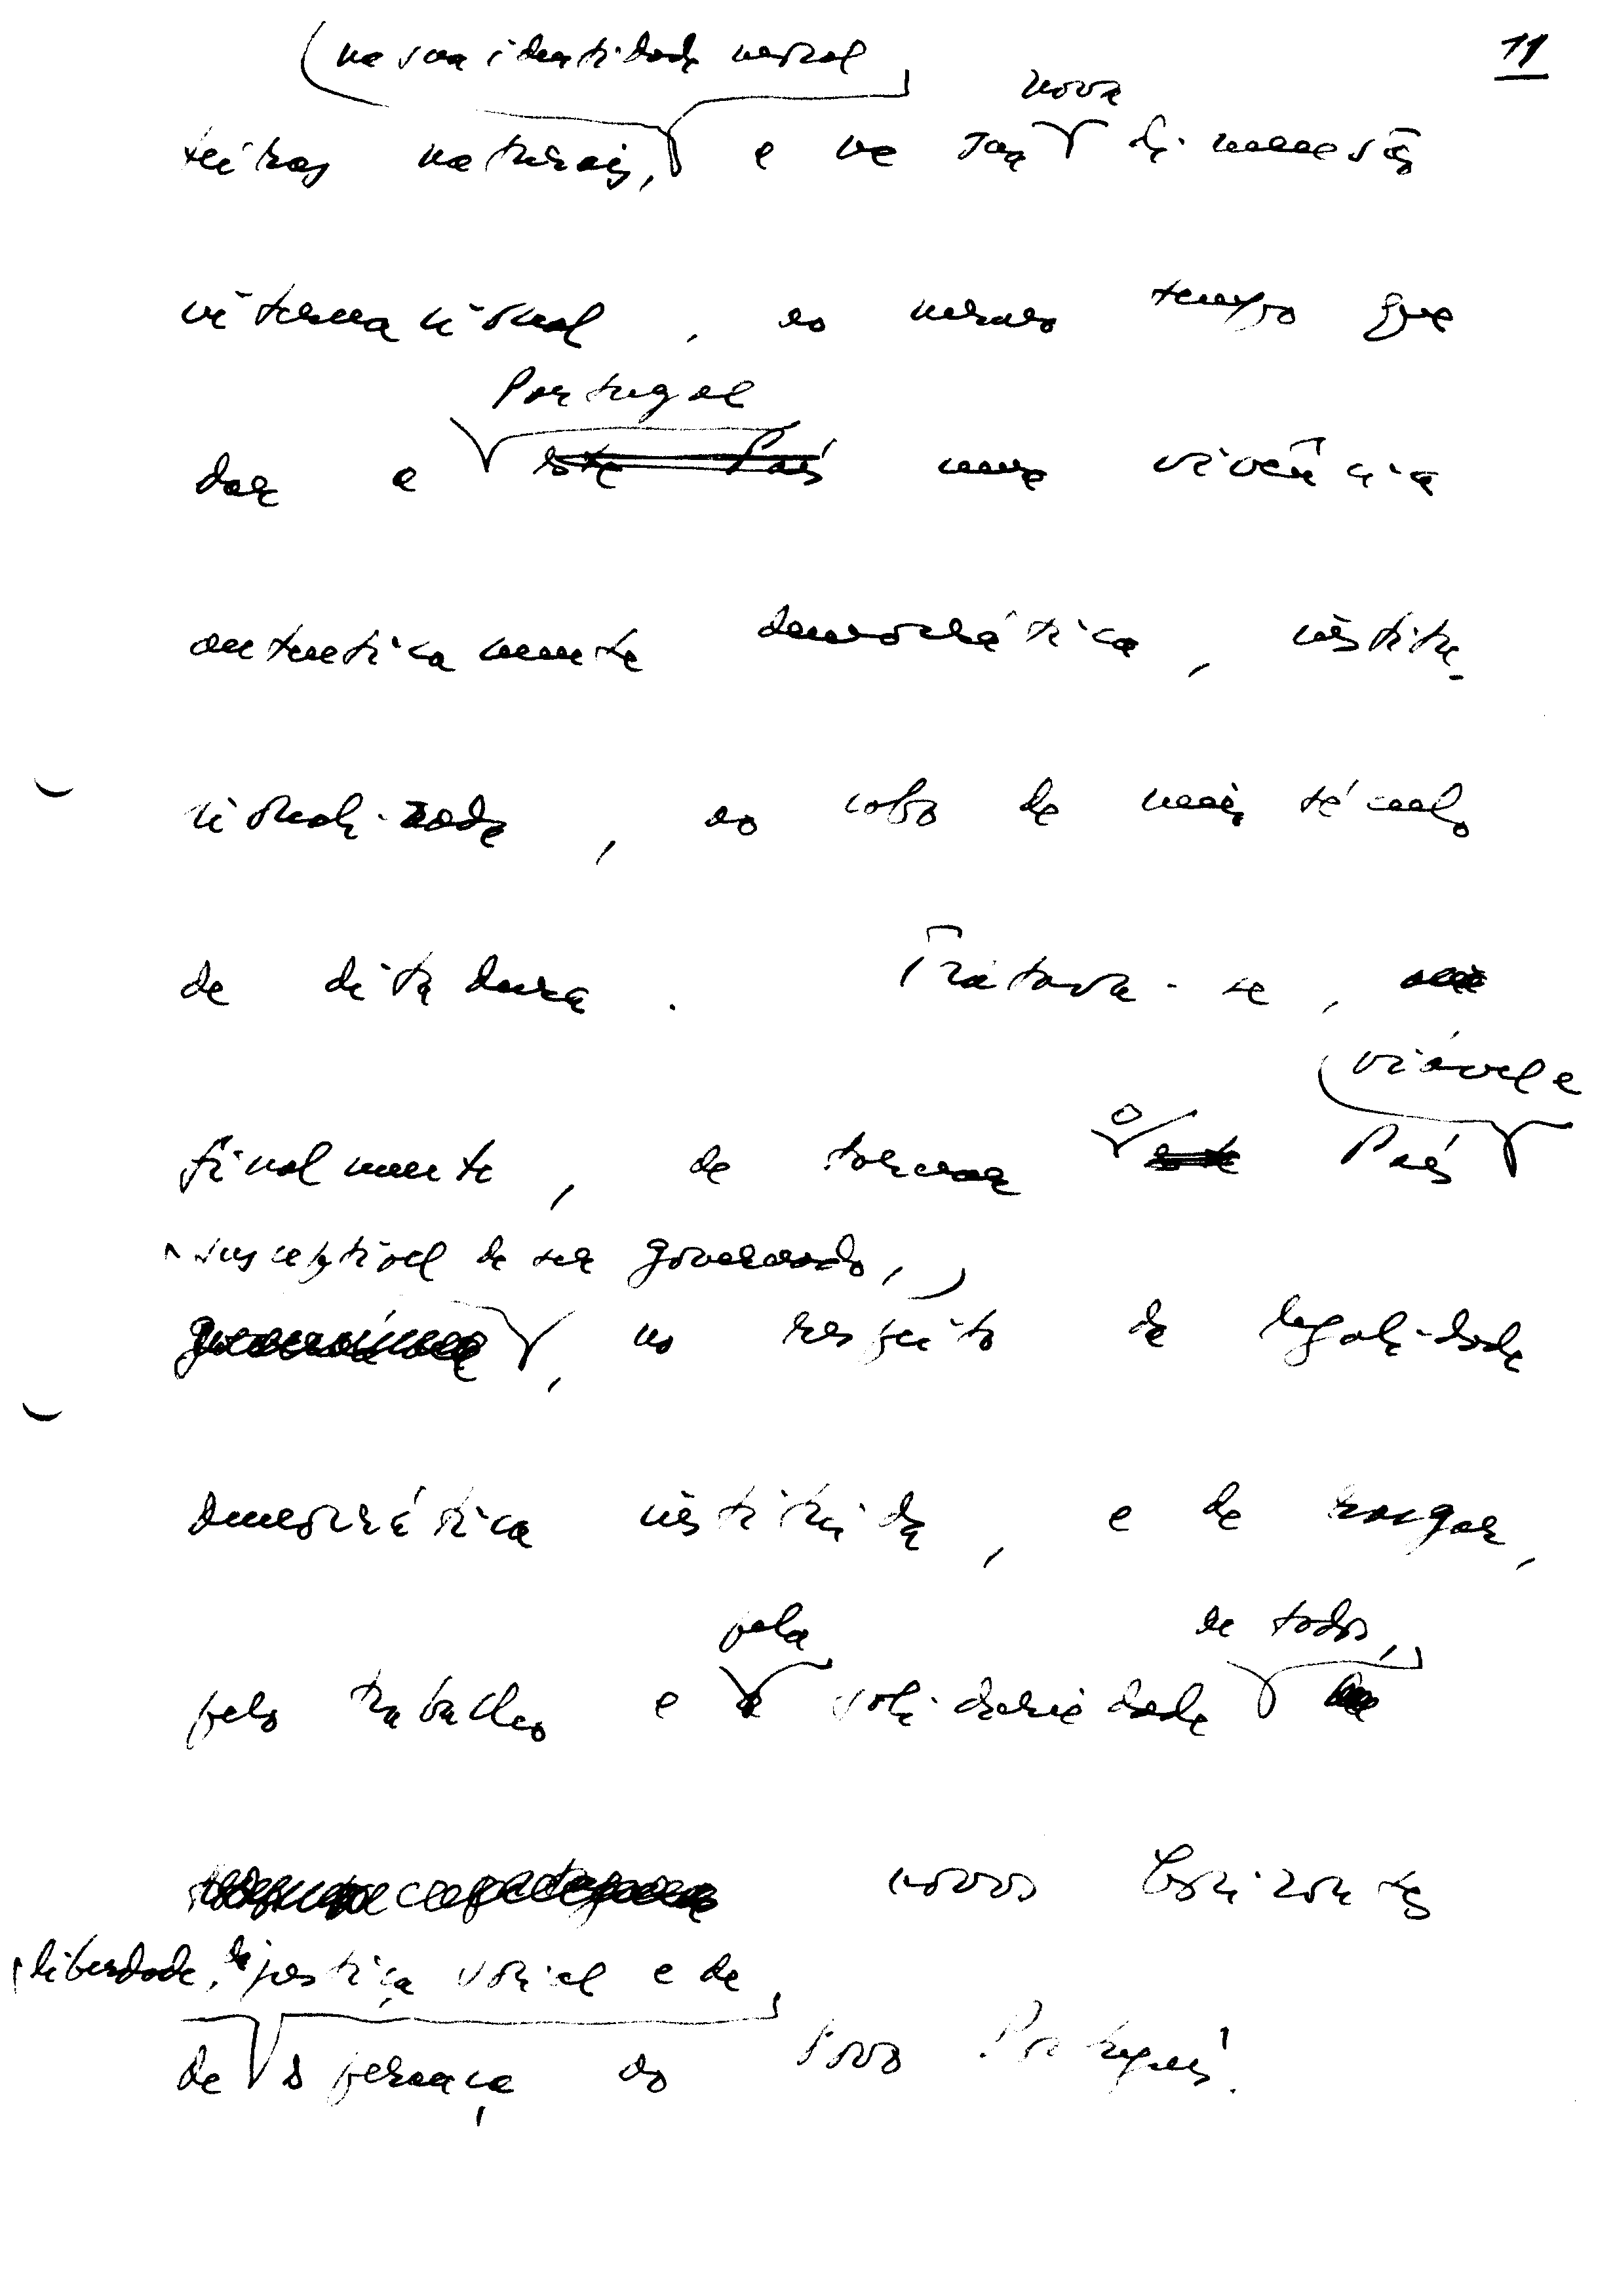 11
na sua identidade
nova
teiras naturais, e na sua dimensão
internacional, ao mesmo tempo que
Portugal
dar a este País uma vivência
autenticamente democrática, institu-
cionalizada, ao cabo de meio século
de ditadura. Tratava-se,
viável e
finalmente, de tornar o este País
susceptível de ser governado,
no respeito da legalidade
democrática instituída, e de rasgar,
pela de todos,
pelo trabalho e a solidariedade
novos horizontes
liberdade, de justiça social e de
de esperança ao Povo Português.